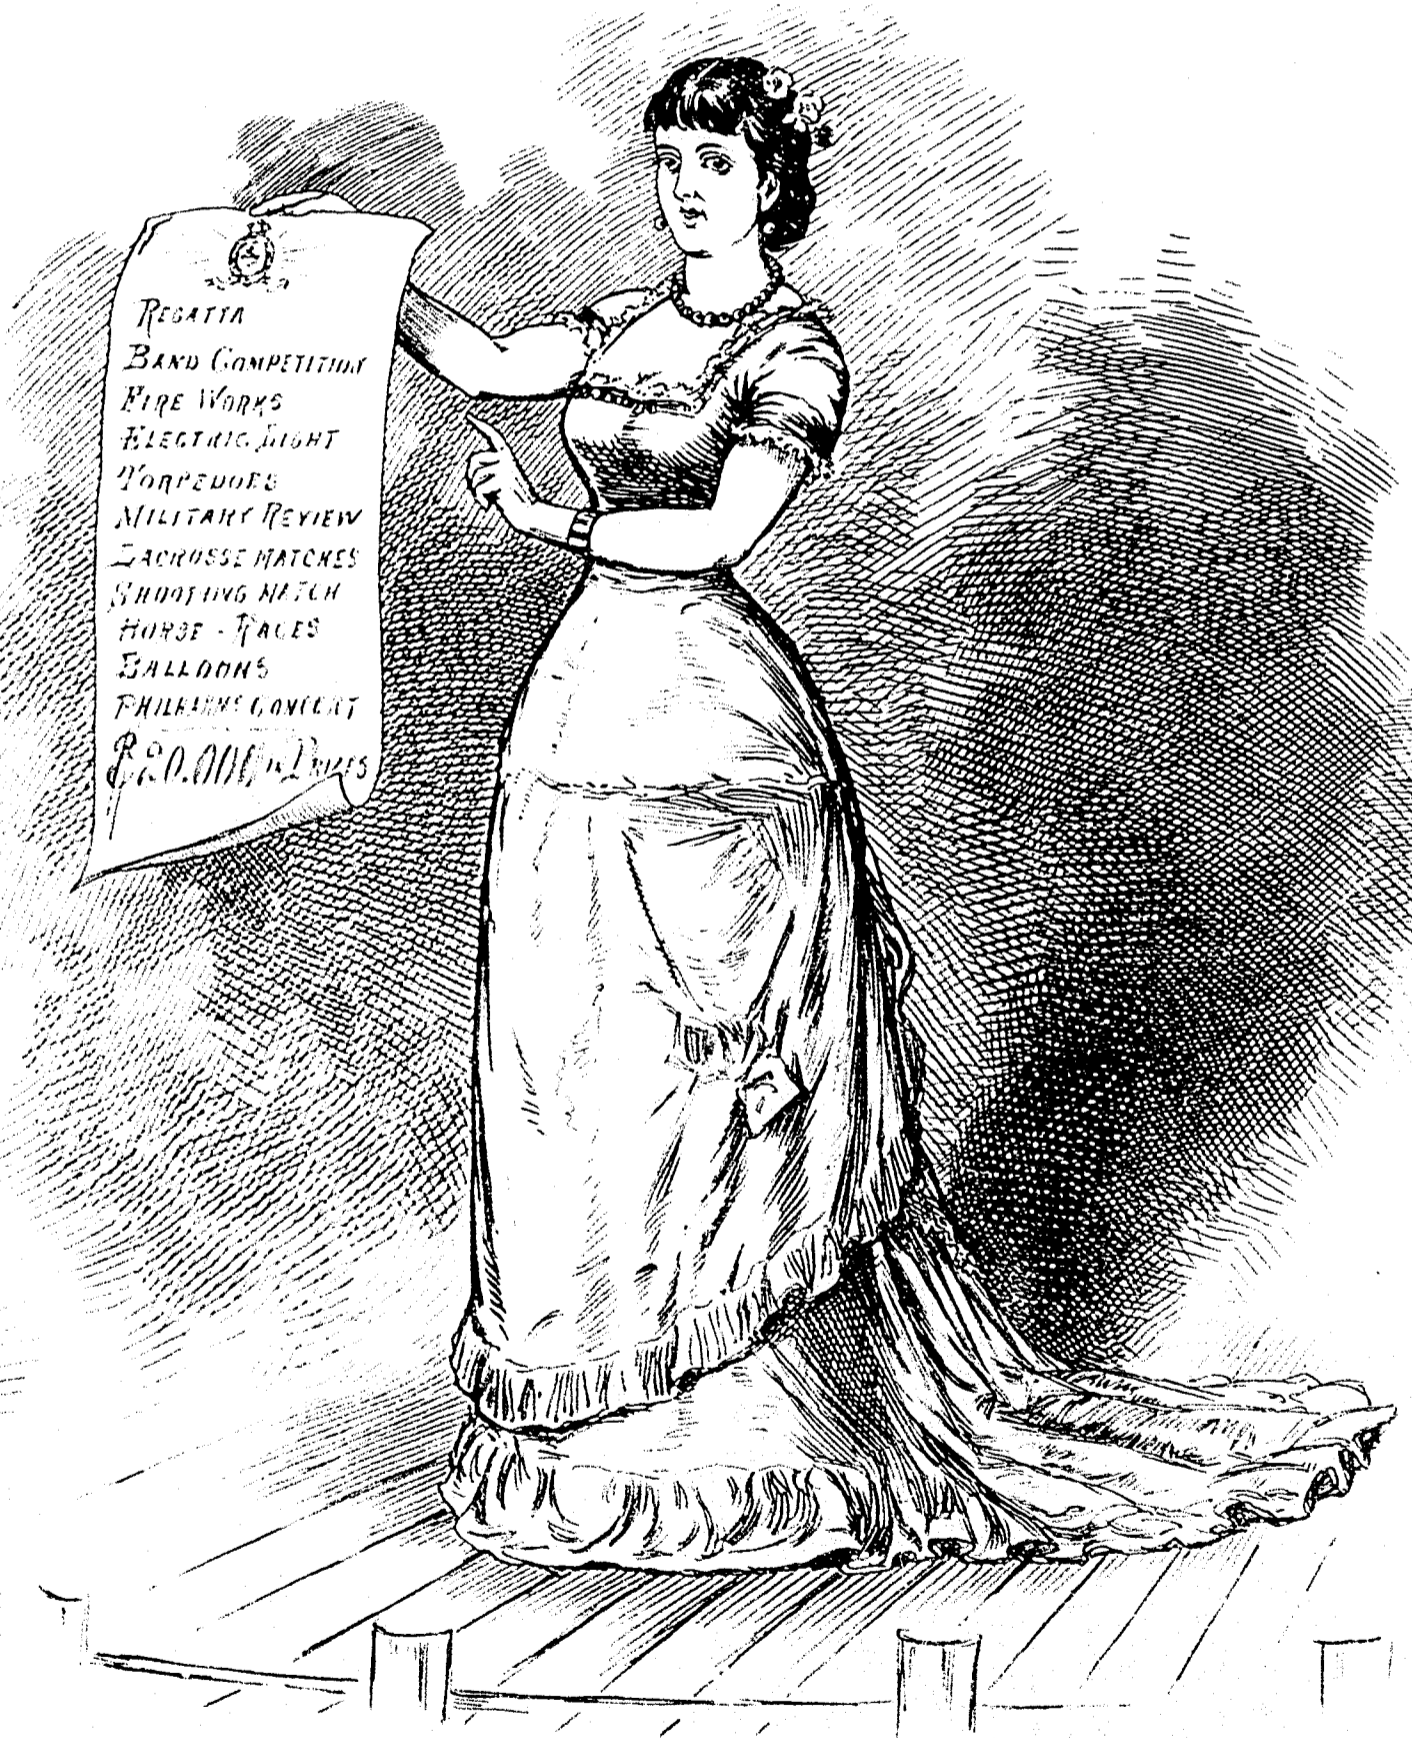 REGATTA
BAND COMPETITION
FIRE WORKS
ELECTRIC LIGHT
TORPEDOES
MILITARY REVIEW
LACROSSE MATCHES
SHOOTING MATCH
HORSE - RACES
BALLOONS
PHILHARMC CONCERT
$20.000 IN PRIZES